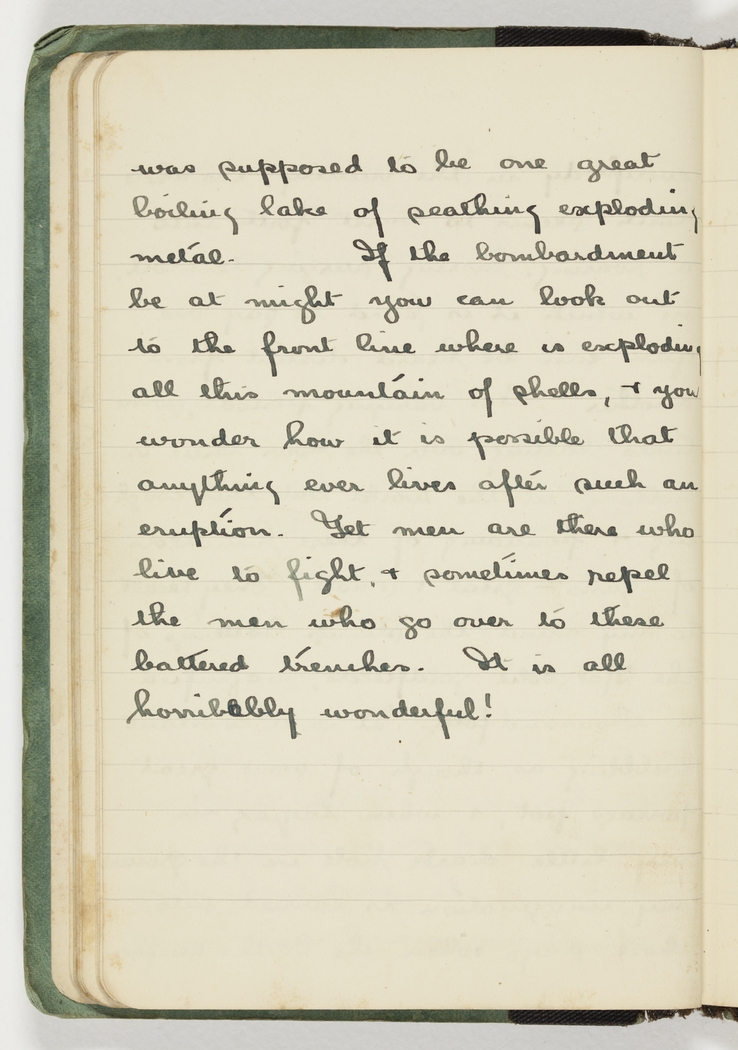 was supposed to be one great
boiling lake of seathing exploding
metal. If the bombardment
be at night you can look out
to the front line where is exploding
all this mountain of shells, + you
wonder how it is possible that
anything ever lives after such an
eruption. Yet men are there who
live to fight, + sometimes repel
the men who go over to these
battered trenches. It is all
horribably wonderful!